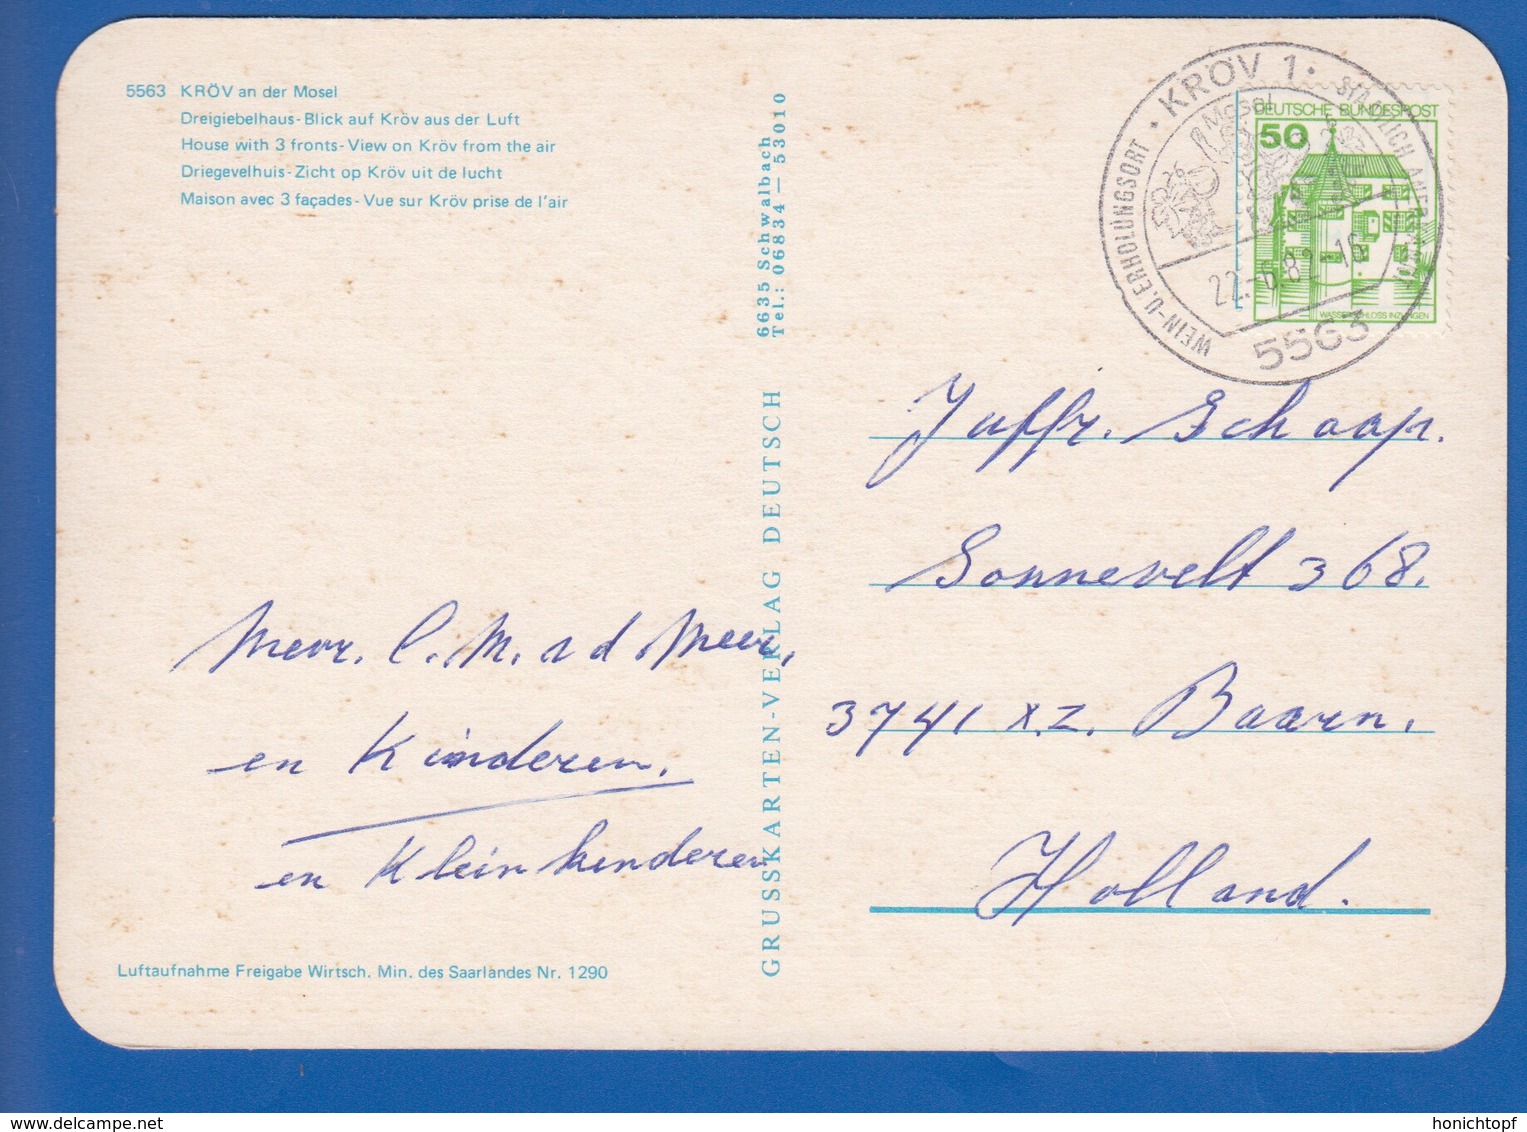 5563 KRÖV an der Mosel
Dreigiebelhaus - Blick auf Kröv aus der Luft
House with 3 fronts - View on Kröv from the air
Driegevelhuis - Zicht op Kröv uit de lucht
Maison avec 3 façades - Vue sur Kröv prise de l'air
Mevr. C. M. v d Meer,
en Kinderen.
en Kleinkinderen
Luftaufnahme Freigabe Wirtsch. Min. des Saarlandes Nr. 1290
GRUSSKARTEN-VERLAG DEUTSCH
6635 Schwalbach
Tel.: 06834 — 53010
KRÖV 1
WEIN- U. ERHOLUNGSORT
STAATLICH
Mosel
22.-6.82-16
5563
DEUTSCHE BUNDESPOST
50
WASSERSCHLOSS INZLINGEN
Juffr. Schaap.
Sonnevelt 368.
3741 X.Z. Baarn.
Holland.
honichtopf